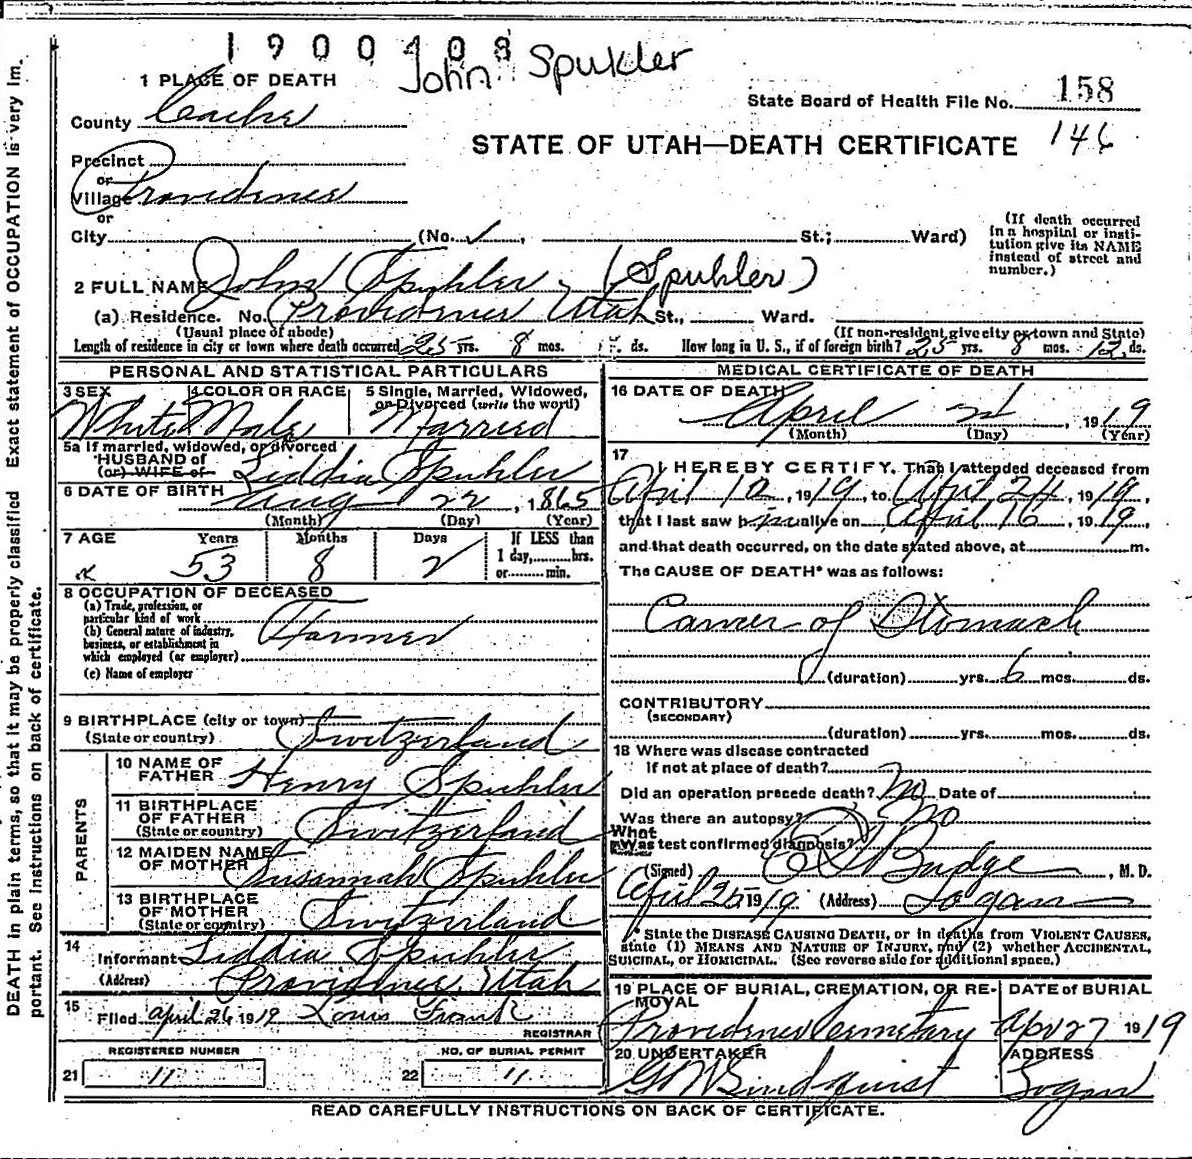 1900408
John Spukler
1 PLACE OF DEATH
State Board of Health File No. 158
County Cache
146
STATE OF UTAH—DEATH CERTIFICATE
Precinct
or
Village Providence
or
City (No. St.; Ward)
(If death occurred in a hospital or institution give its NAME instead of street and number.)
2 FULL NAME John Spuhler (Spuhler)
(a) Residence. No. Providence Utah St., Ward.
(Usual place of abode) (If non-resident give city or town and State)
Length of residence in city or town where death occurred 25 yrs. 8 mos. ds. How long in U. S., if of foreign birth? 25 yrs. 8 mos. 12 ds.
PERSONAL AND STATISTICAL PARTICULARS
3 SEX 4 COLOR OR RACE 5 Single, Married, Widowed, or Divorced (write the word)
White Male Married
5a If married, widowed, or divorced
HUSBAND of
(or) WIFE of Liddia Spuhler
6 DATE OF BIRTH Aug 22, 1865
(Month) (Day) (Year)
7 AGE Years Months Days If LESS than
1 day, hrs.
or min.
53 8 2
8 OCCUPATION OF DECEASED
(a) Trade, profession, or
particular kind of work Farmer
(b) General nature of industry,
business, or establishment in
which employed (or employer)
(c) Name of employer
9 BIRTHPLACE (city or town)
(State or country) Switzerland
PARENTS
10 NAME OF
FATHER Henry Spuhler
11 BIRTHPLACE
OF FATHER
(State or country) Switzerland
12 MAIDEN NAME
OF MOTHER Susannah Spuhler
13 BIRTHPLACE
OF MOTHER
(State or country) Switzerland
14
Informant Liddia Spuhler
(Address) Providence Utah
15
Filed April 26 1919 Louis Frank
REGISTRAR
REGISTERED NUMBER NO. OF BURIAL PERMIT
21 11 22 11
MEDICAL CERTIFICATE OF DEATH
16 DATE OF DEATH
April 24, 1919
(Month) (Day) (Year)
17
I HEREBY CERTIFY, That I attended deceased from
April 10, 1919, to April 24, 1919,
that I last saw him alive on April 16, 1919,
and that death occurred, on the date stated above, at m.
The CAUSE OF DEATH* was as follows:
Cancer of Stomach
(duration) yrs. 6 mos. ds.
CONTRIBUTORY
(SECONDARY)
(duration) yrs. mos. ds.
18 Where was disease contracted
If not at place of death?
Did an operation precede death? No Date of
Was there an autopsy? No
What
test confirmed diagnosis?
(Signed) Budge, M. D.
April 25 1919 (Address) Logan
* State the DISEASE CAUSING DEATH, or in deaths from VIOLENT CAUSES,
state (1) MEANS AND NATURE OF INJURY, and (2) whether ACCIDENTAL,
SUICIDAL, or HOMICIDAL. (See reverse side for additional space.)
19 PLACE OF BURIAL, CREMATION, OR RE-
MOVAL
DATE of BURIAL
Providence Cemetary Apr 27 1919
20 UNDERTAKER ADDRESS
Lindquist Logan
READ CAREFULLY INSTRUCTIONS ON BACK OF CERTIFICATE.
DEATH in plain terms, so that it may be properly classified Exact statement of OCCUPATION is very im.
portant. See instructions on back of certificate.